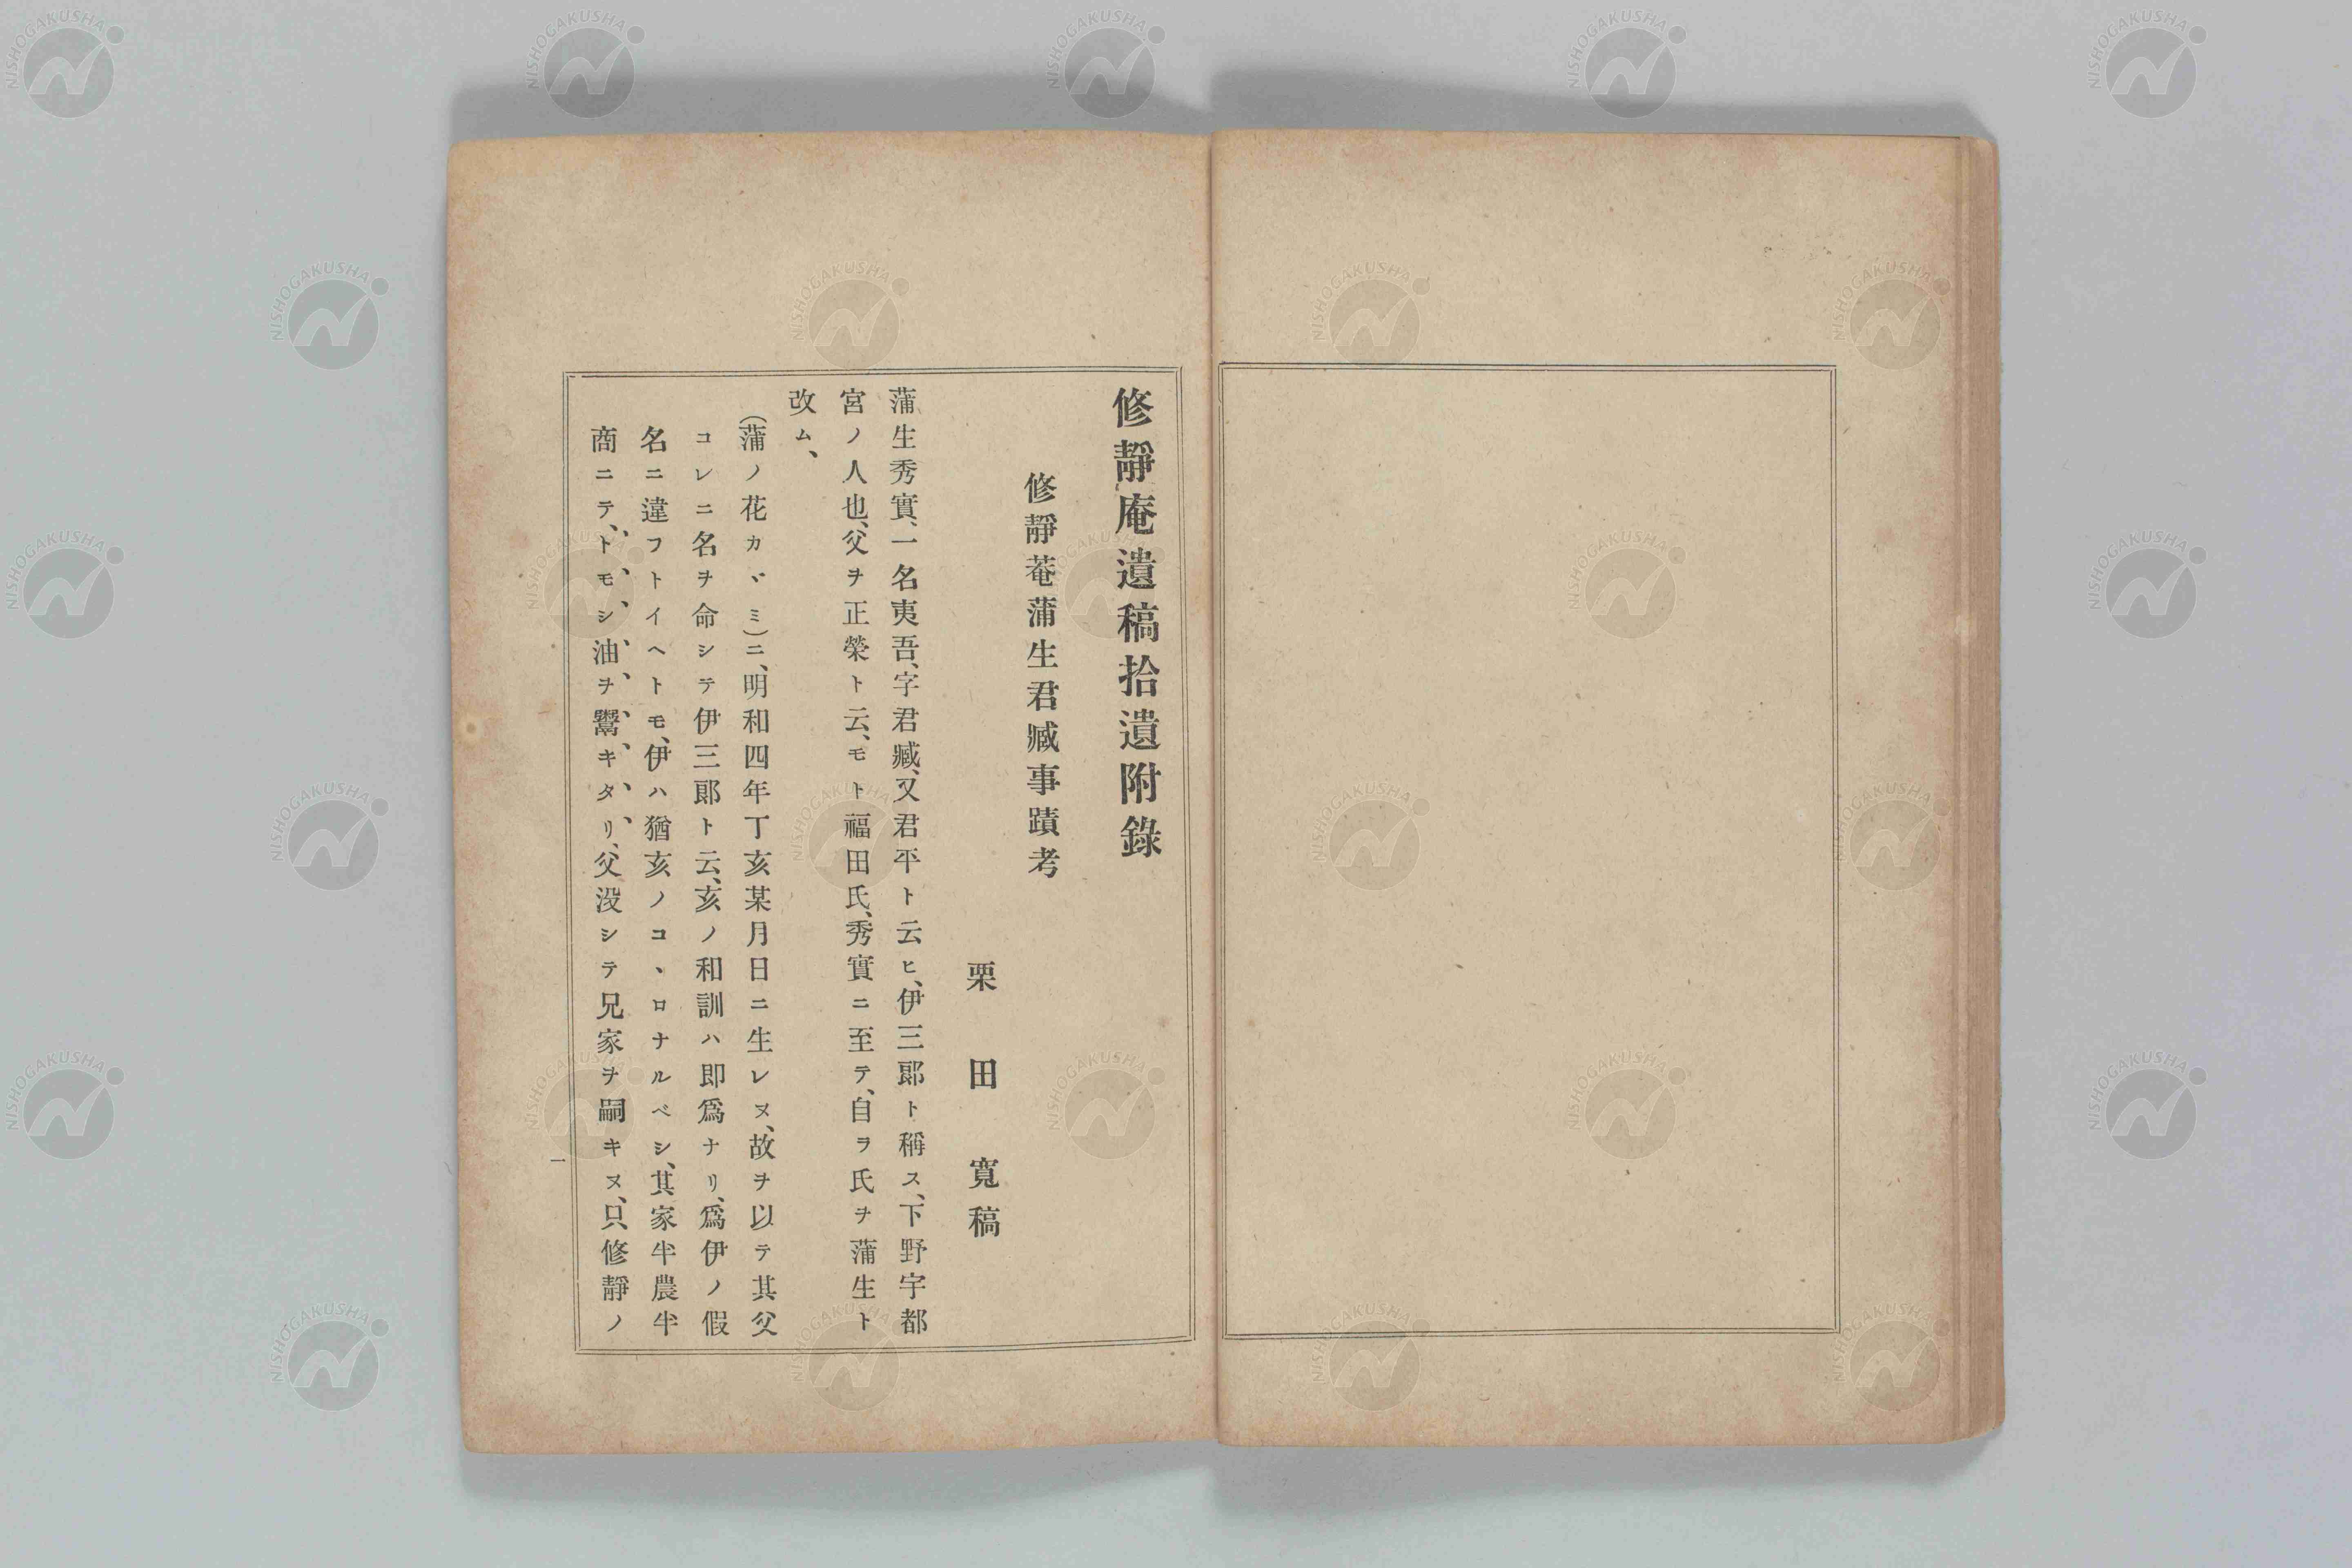 修靜庵遺稿拾遺附錄
修靜菴蒲生君臧事蹟考
栗田寬稿
蒲生秀實、一名夷吾、字君臧、又君平ト云ヒ、伊三郞ト稱ス、下野宇都
宮ノ人也、父ヲ正榮ト云、モト福田氏、秀實ニ至テ、自ラ氏ヲ蒲生ト
改ム、
(蒲ノ花カヾミ)ニ、明和四年丁亥某月日ニ生レヌ、故ヲ以テ其父
コレニ名ヲ命シテ伊三郞ト云、亥ノ和訓ハ即爲ナリ、爲伊ノ假
名ニ違フトイヘトモ、伊ハ猶亥ノコヽロナルベシ、其家半農半
商ニテ、トモシ油ヲ鬻キタリ、父沒シテ兄家ヲ嗣キヌ、只修靜ノ
一
NISHOGAKUSHA